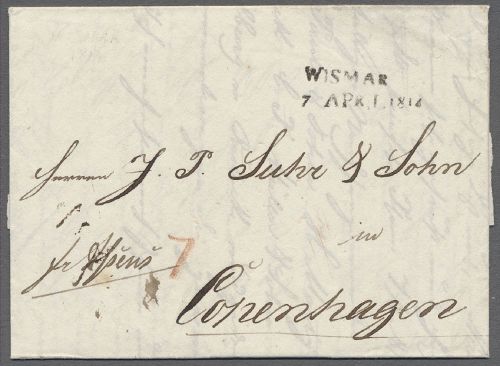 WISMAR
7 APRIL 1818
Herren J. P. Suhr & Sohn
in
fr
7
Copenhagen